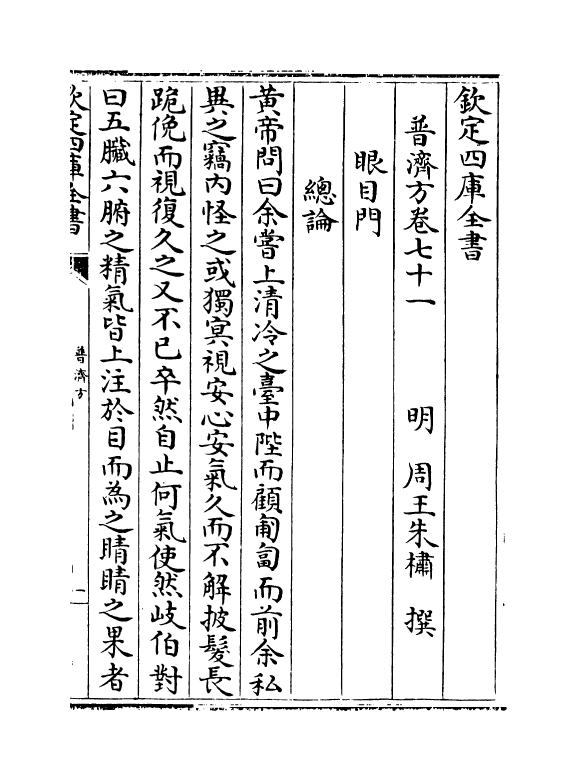 欽定四庫全書
普濟方卷七十一　　明　周王朱橚　撰
眼目門
總論
黃帝問曰余嘗上清冷之臺中陛而顧匍匐而前余私
異之竊內怪之或獨㝠視安心安氣久而不解披髮長
跪俛而視復久之又不已卒然自止何氣使然岐伯對
曰五臟六腑之精氣皆上注於目而為之睛睛之果者
欽定四庫全書
普濟方
一